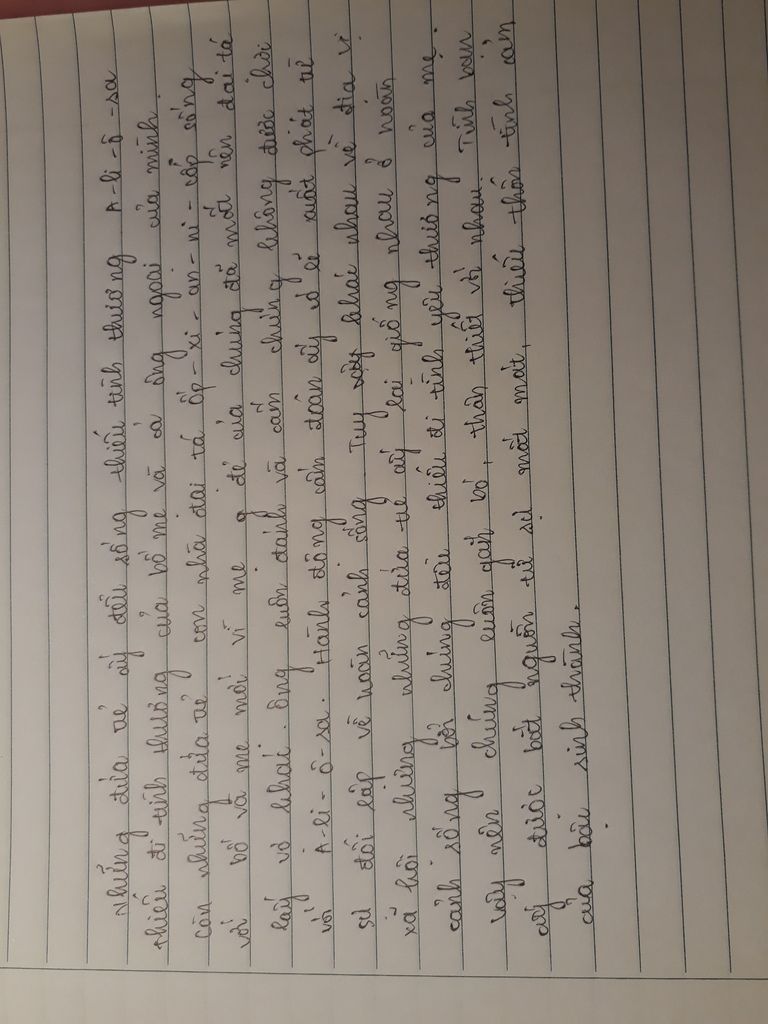 Những đứa trẻ ấy đều sống thiếu tình thương A-li-ô-sa
thiếu đi tình thương của bố mẹ và cả ông ngoại của mình.
Còn những đứa trẻ con nhà đại tá Ốp-xi-an-ni-cốp sống
với bố và mẹ mới vì mẹ đẻ của chúng đã mất nên đại tá
lấy vợ khác. Ông luôn đánh và cấm chúng không được chơi
với A-li-ô-sa. Hành động cấm đoán ấy có lẽ xuất phát từ
sự đối lập về hoàn cảnh sống. Tuy khác nhau về địa vị
xã hội nhưng những đứa trẻ ấy lại giống nhau ở hoàn
cảnh sống bởi chúng đều thiếu đi tình yêu thương của mẹ.
Vậy nên chúng luôn gắn bó, thân thiết với nhau. Tình bạn
ấy được bắt nguồn từ sự mất mát, thiếu thốn tình cảm
của bậc sinh thành.